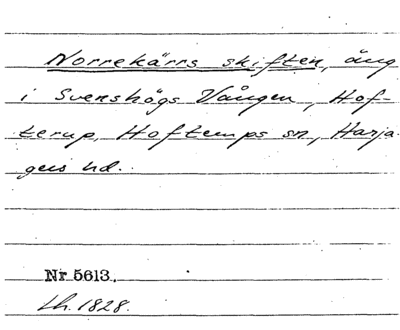 Norrekärrs skiften, äng
i Svenshögs Vången, Hof-
terup, Hofterups sn, Harja-
gers hd.
Nr 5613.
Lh. 1828.